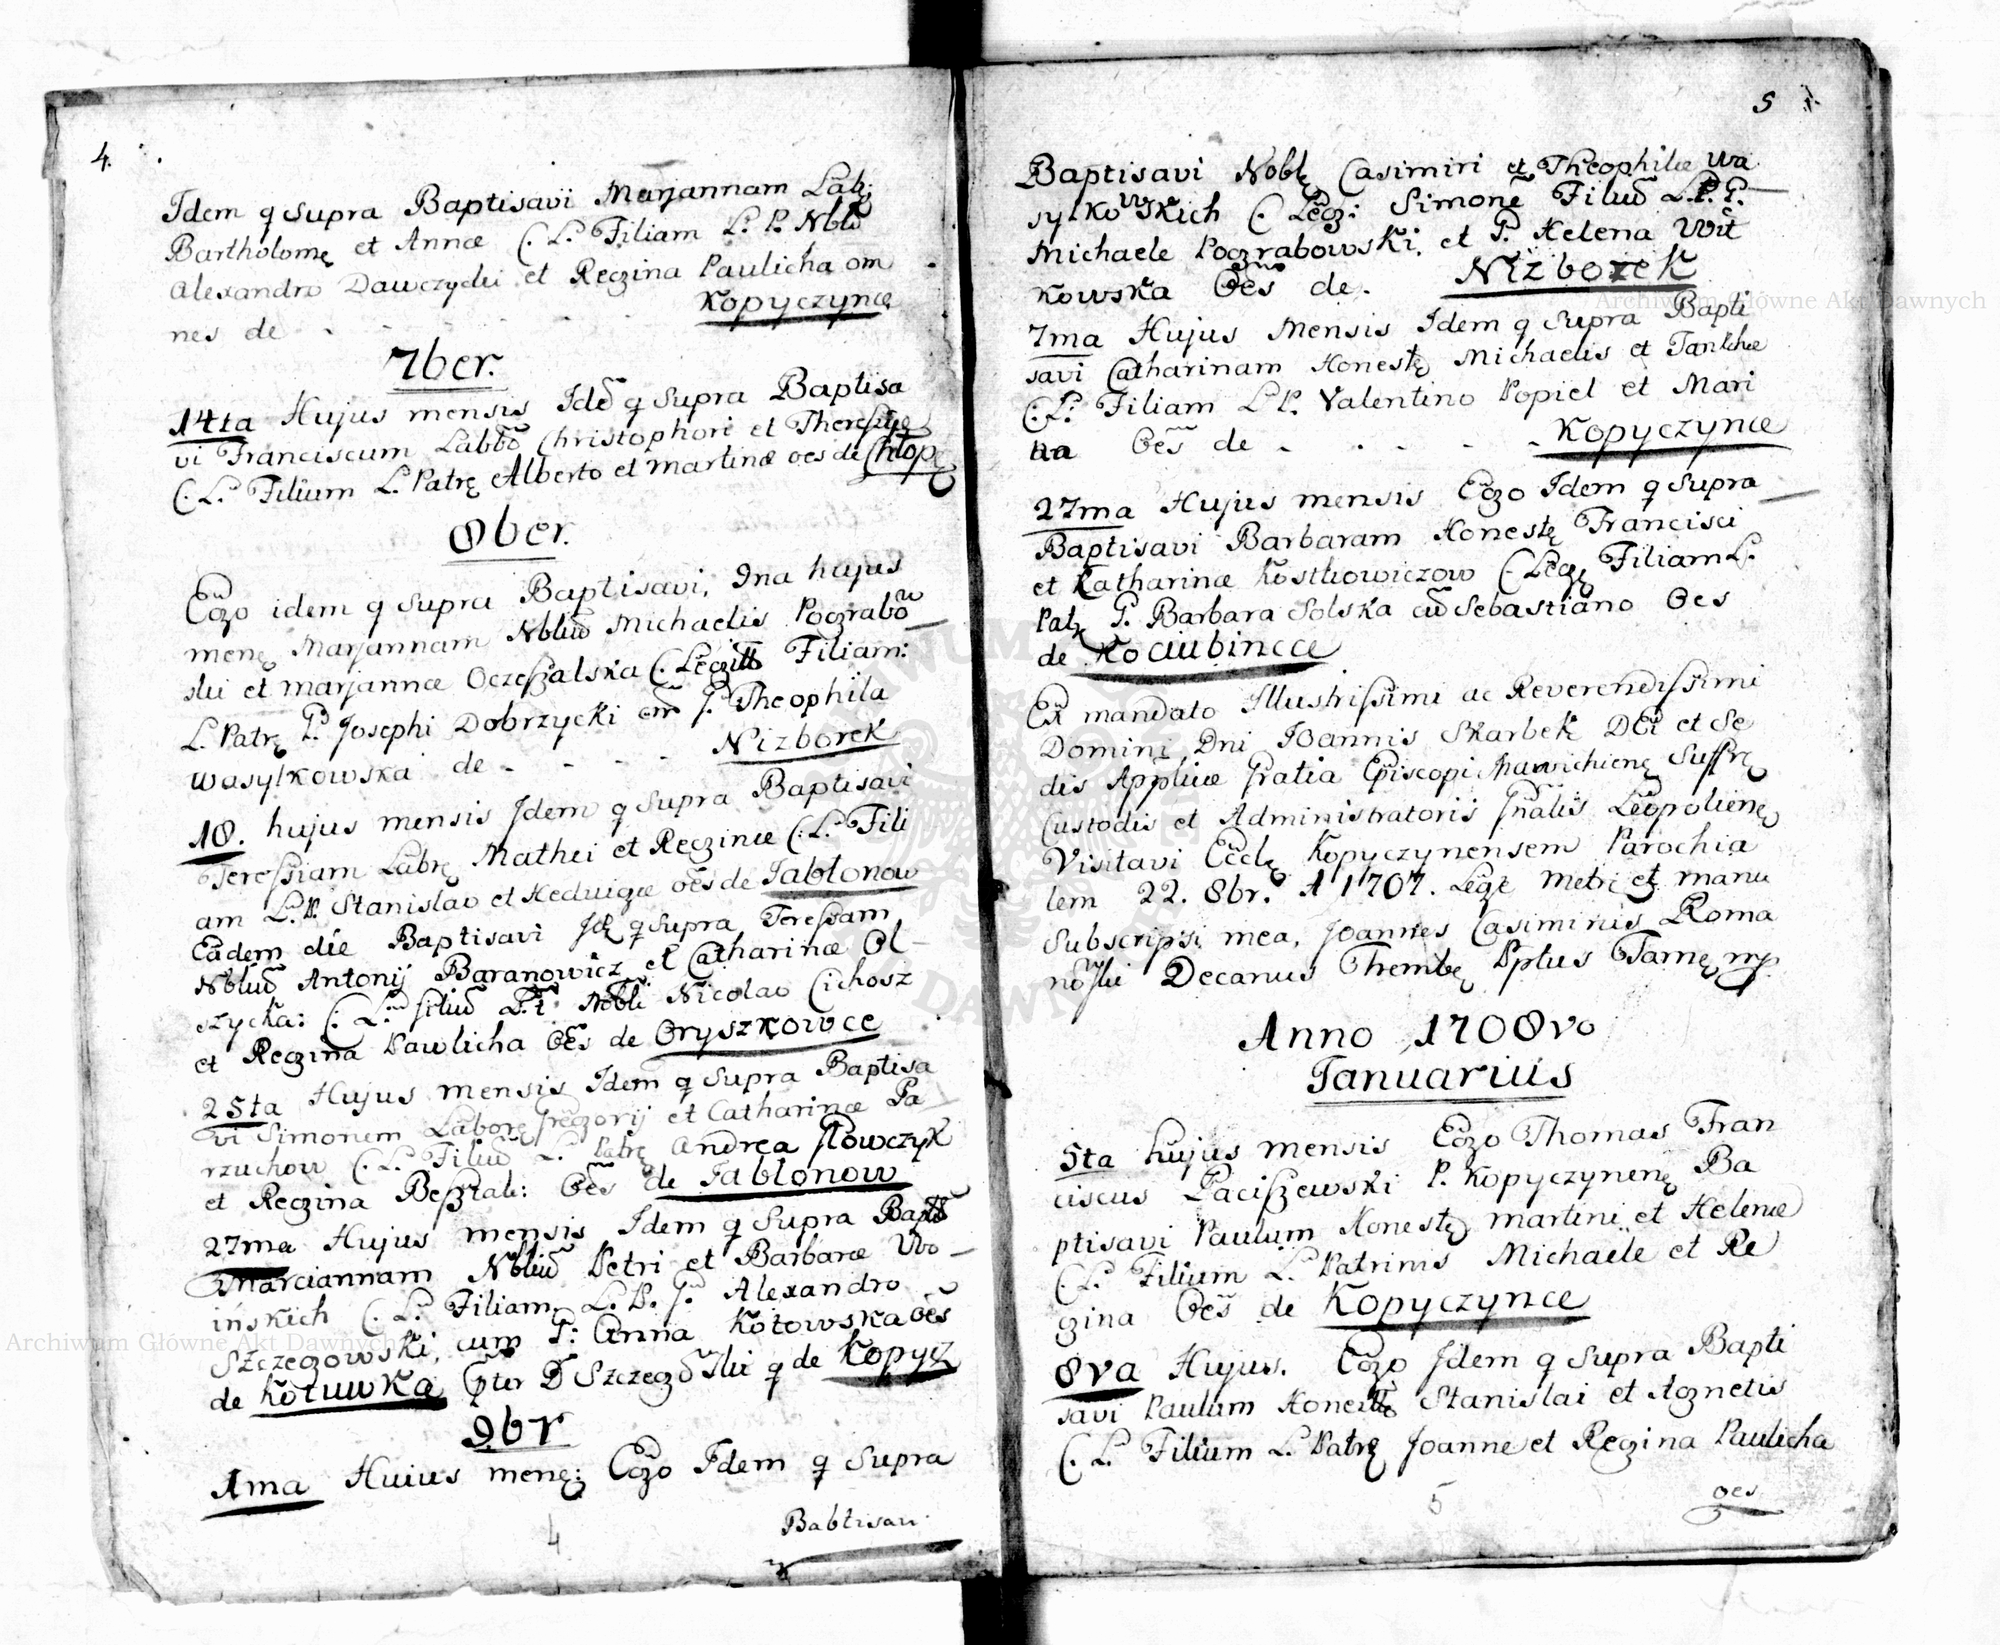 4.
Idem q supra Baptisavi Marjannam Lab:
Bartholomę et Annæ (. L. Filiam L. P. Nblũ
Alexandro Dawczycki et Regina Paulicha om
nes de - - - - Kopyczynce
7ber.
14ta Hujus mensis Idẽ q supra Baptisa
vi Franciscum Labbõ Christophori et Theressię
(. L. Filium L. Patrę Alberto et Martinæ oẽs de Chłopę
8ber.
Ego idem q supra Baptisavi, 9na hujus
menę Marjannam Nbliũ Michaelis Pograbõ
ski et Marjannæ Oczeszalska (. Legitt Filiam:
L. Patrę P. Josephi Dobrzycki cũ P. Theophila
Wasylkowska de - - - - Nizborek
18. hujus mensis Idem q supra Baptisavi
Teressiam Labrę Mathei et Reginæ (. L. Fili
am L. P. Stanislao et Heduigæ oẽs de Jabłonow
Eadem die Baptisavi Idę q supra Teressam
Nbliũ Antonij Baranowicz et Catharinæ Ol
szycka: (. L. filiũ L. P. Nobli Nicolao Cichosz
et Regina Pawlicha Oẽs de Oryszkowce
25ta Hujus mensis Idem q supra Baptisa
vi Simonem Laborę Gregorij et Catharinæ Pa
rzuchow (. L. Filiũ L. Patrę Andrea Głowczyk
et Regina Besztak: Oẽs de Jabłonow
27ma Hujus mensis Idem q supra Bapti
Marciannam Nbliũ Petri et Barbaræ Wo
ińskich (. L. Filiam L. P. P. Alexandro
Szczegowski, cum P: Anna Kotowska oẽs
de Kotuwka Ꝓter D Szczegõski q de Kopycz
9br
1ma Huius menę: Ego Idem q supra
Babtisavi
4
5
Baptisavi Noblę Casimiri et Theophilæ Wa
sylkowskich (. Leg: Simonẽ Filiũ L. P. P.
Michaele Pograbowski, et P. Helena Wit
kowska Oẽs de. Nizborek
7ma Hujus Mensis Idem q supra Bapti
savi Catharinam Honestę Michaelis et Jankhæ
(. L. Filiam L P. Valentino Popiel et Mari
na Oẽs de - - - - Kopyczynce
27ma Hujus mensis Ego Idem q supra
Baptisavi Barbaram Honestę Francisci
et Katharinæ Kostkowiczow (. Legę Filiam L.
Patr P. Barbara Solska cũ Sebastiano Oẽs
de Kociubince
Ex mandato Illustrissimi ac Reverendissimi
Domini Dni Joannis Skarbek DEi et Se
dis Applicæ Gratia Episcopi Marrichienę Suffrę
Custodis et Administratoris Gñalis Leopolienę
Visitavi Ecclę Kopyczynensem Parochia
lem 22. 8br. A 1707. Lege Metri et manu
subscripsi mea, Joannes Casimirus Roma
nõski Decanus Trembę Pptus Tarnę mp.
Anno 1708vo
Januarius
5ta hujus mensis Ego Thomas Fran
ciscus Paciszewski P. Kopyczynenę Ba
ptisavi Paulum Honestę Martini et Helenæ
(. L. Filium L. Patrinis Michaële et Re
gina Oẽs de Kopyczynce
8va Hujus. Ego Idem q supra Bapti
savi Paulum Honestę Stanislai et Agnetis
(. L. Filium L. Patrę Joanne et Regina Paulicha
oẽs
5
Archiwum Główne Akt Dawnych
Archiwum Główne Akt Dawnych